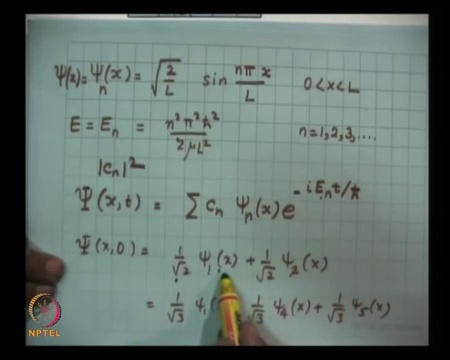 Ψ(x) = Ψn(x) = √(2/L) sin nπx/L 0<x<L
E = En = n²π²ħ²/2μL² n=1,2,3,....
|Cn|²
Ψ(x,t) = Σ Cn Ψn(x) e^(-iEnt/ħ)
Ψ(x,0) = 1/√2 Ψ1(x) + 1/√2 Ψ2(x)
= 1/√3 Ψ1( 1/√3 Ψ4(x) + 1/√3 Ψ5(x)
NPTEL